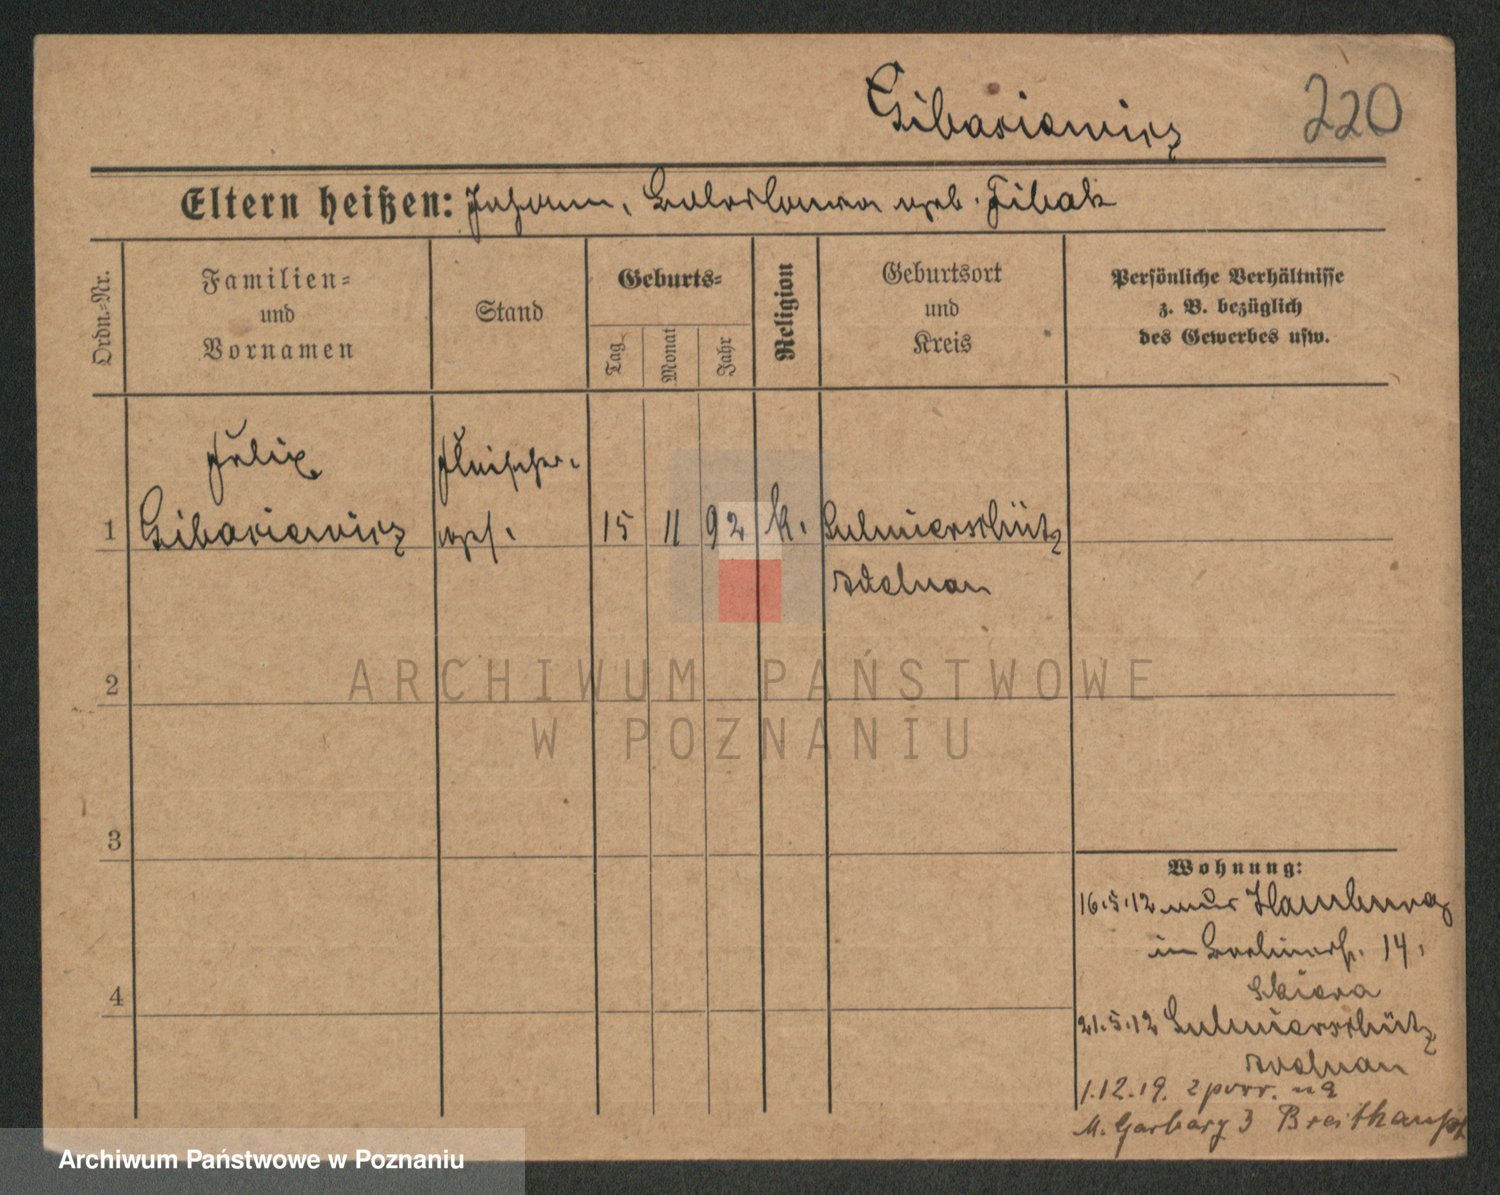 Gibasiewicz 220
Eltern heißen: Johann, Boleslawa geb. Fibak
Ordn.-Nr.
Familien-
und
Vornamen
Stand
Geburts-
Tag
Monat
Jahr
Religion
Geburtsort
und
Kreis
Persönliche Verhältnisse
z. B. bezüglich
des Gewerbes usw.
Felix
Fleischer-
1 Gibasiewicz ges. 15 11 92 k. Sulmierschütz
Adelnau
2
3
4
ARCHIWUM PAŃSTWOWE
W POZNANIU
Wohnung:
16.5.12 aus Hamburg
in Berlinerstr. 14,
Skiera
21.5.12 Sulmierschütz
Adelnau
1.12.19. z pow.
M. Garbary 3 Breithaupt
Archiwum Państwowe w Poznaniu